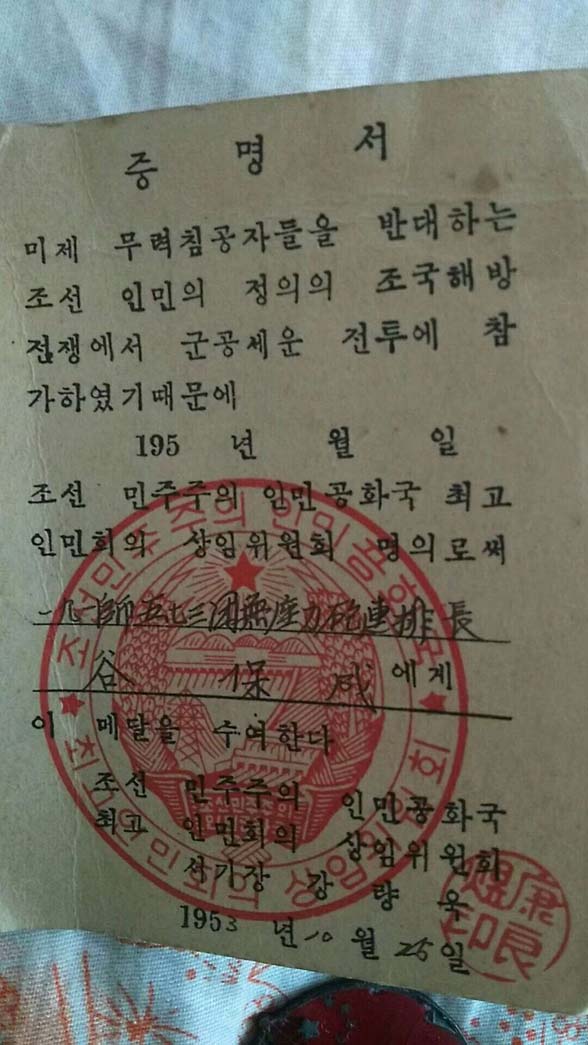 증 명 서
미제 무력침공자들을 반대하는
조선 인민의 정의의 조국해방
전쟁에서 군공세운 전투에 참
가하였기때문에
195 년 월 일
조선 민주주의 인민공화국 최고
인민회의 상임위원회 명의로써
一八一師五七三团無座力砲連排長
谷 保 成 에게
이 메달을 수여한다
조선 민주주의 인민공화국
최고 인민회의 상임위원회
서기장 강 량 욱
1953 년 10 월 25 일
조선민주주의인민공화국
최고인민회의 상임위원회
康良煜印